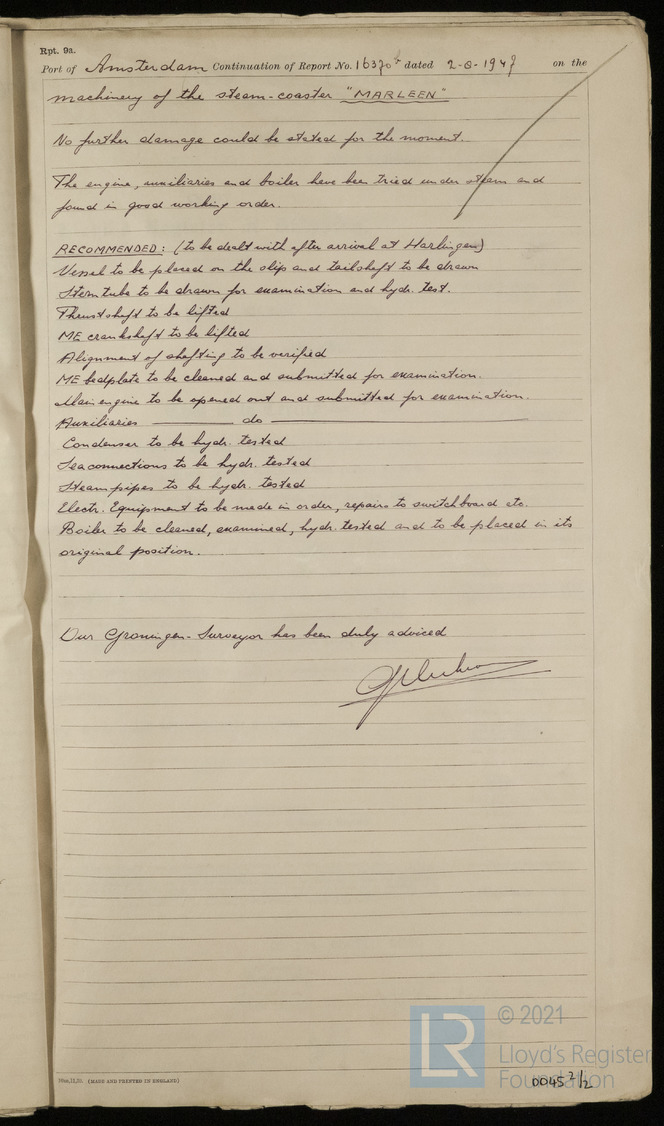 Rpt. 9a.
Port of Amsterdam Continuation of Report No. 16370 dated 2-8-1947 on the
machinery of the steam-coaster "MARLEEN"
No further damage could be stated for the moment.
The engine, auxiliaries and boiler have been tried under steam and
found in good working order.
RECOMMENDED: (to be dealt with after arrival at Harlingen)
Vessel to be placed on the slip and tailshaft to be drawn
Sterntube to be drawn for examination and hydr. test.
Thrustshaft to be lifted
ME crankshaft to be lifted
Alignment of shafting to be verified
ME bedplate to be cleaned and submitted for examination.
Main engine to be opened out and submitted for examination.
Auxiliaries ——— do ———
Condenser to be hydr. tested
Seaconnections to be hydr. tested
Steampipes to be hydr. tested
Electr. Equipment to be made in order, repairs to switchboard etc.
Boiler to be cleaned, examined, hydr. tested and to be placed in its
original position.
Our Groningen-Surveyor has been duly adviced
(MADE AND PRINTED IN ENGLAND)
LR
© 2021
Lloyd's Register
Foundation
0045 2/2